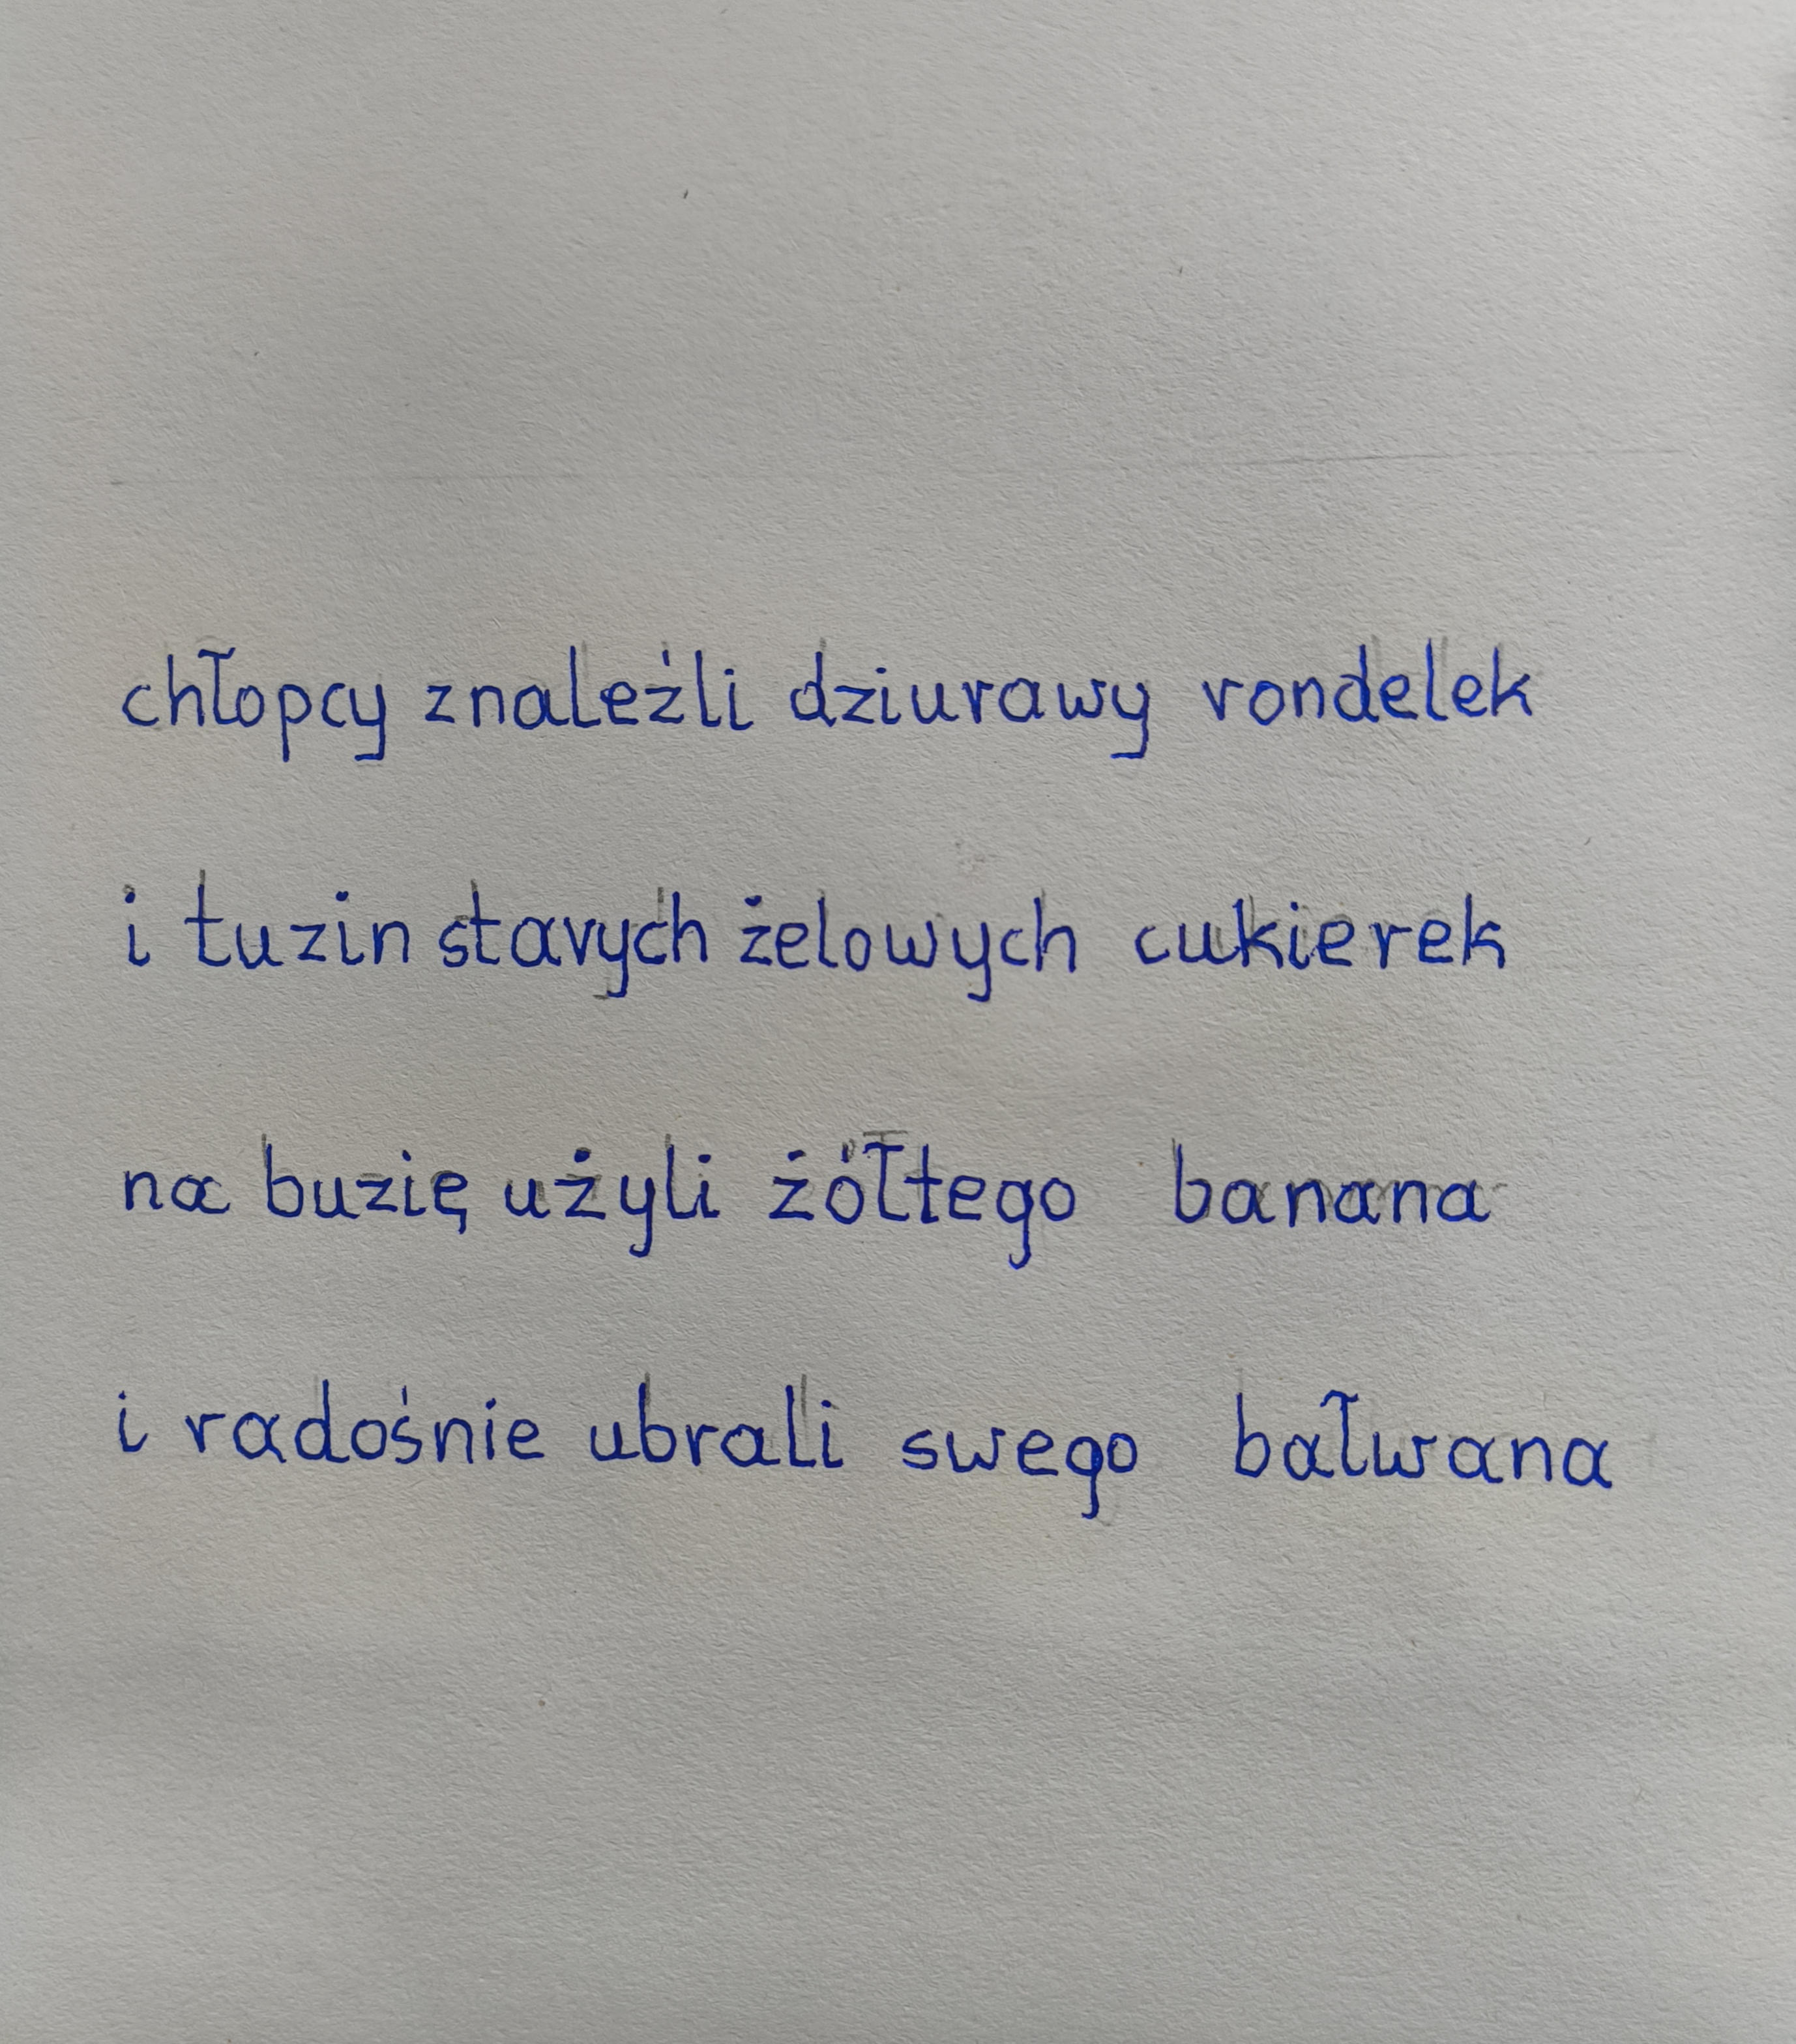 chłopcy znaleźli dziurawy rondelek
i tuzin starych żelowych cukierek
na buzię użyli żółtego banana
i radośnie ubrali swego bałwana